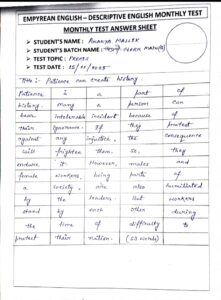 EMPYREAN ENGLISH – DESCRIPTIVE ENGLISH MONTHLY TEST
MONTHLY TEST ANSWER SHEET
➢ STUDENT'S NAME : ANANYA MALLICK
➢ STUDENT'S BATCH NAME : CLERK MAINS(S)
➢ TEST TOPIC : PRECIS
➢ TEST DATE :
Title :- Patience can create history
Patience is a part of
history. Many a person can
bear intolerable incident because of
their ignorance. If they protest
against any injustice, the consequence
will frighten them. So, they
endure it. However, males and
female workers, being parts of
a society, are also humiliated
by the leaders. But workers
stand by each other during
the time of difficulty to
protect their nation. (59 words)